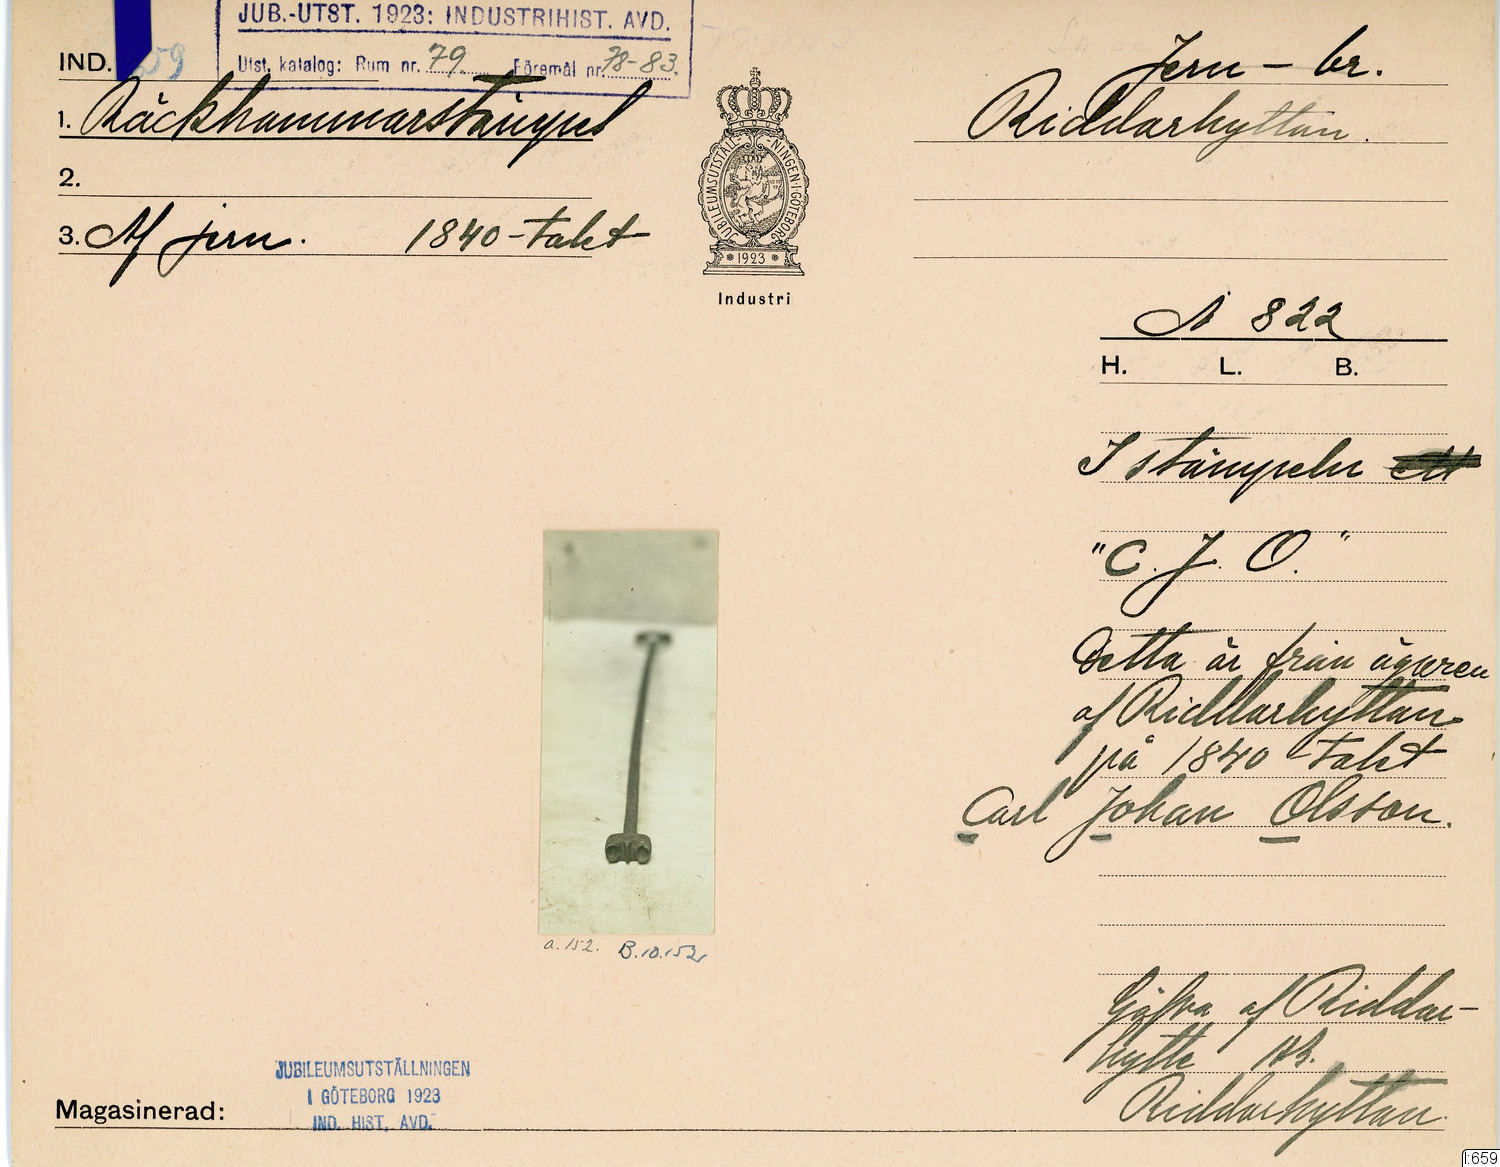 JUB.-UTST. 1923: INDUSTRIHIST. AVD.
Utst. katalog: Rum nr. 79 Föremål nr. 78-83.
IND. 659
1. Räckhammarstämpel
2.
3. Af jern. 1840-talet
JUBILEUMSUTSTÄLLNINGEN I GÖTEBORG
* 1923 *
Industri
Jern - br.
Riddarhyttan.
N 822
H. L. B.
I stämpeln
"C. J. O."
Detta är från ägaren
af Riddarhyttan
på 1840-talet
Carl Johan Olsson.
a. 152. B.10.152
Gåfva af Riddar-
hytte AB.
Riddarhyttan.
JUBILEUMSUTSTÄLLNINGEN
I GÖTEBORG 1923
IND. HIST. AVD.
Magasinerad:
I:659